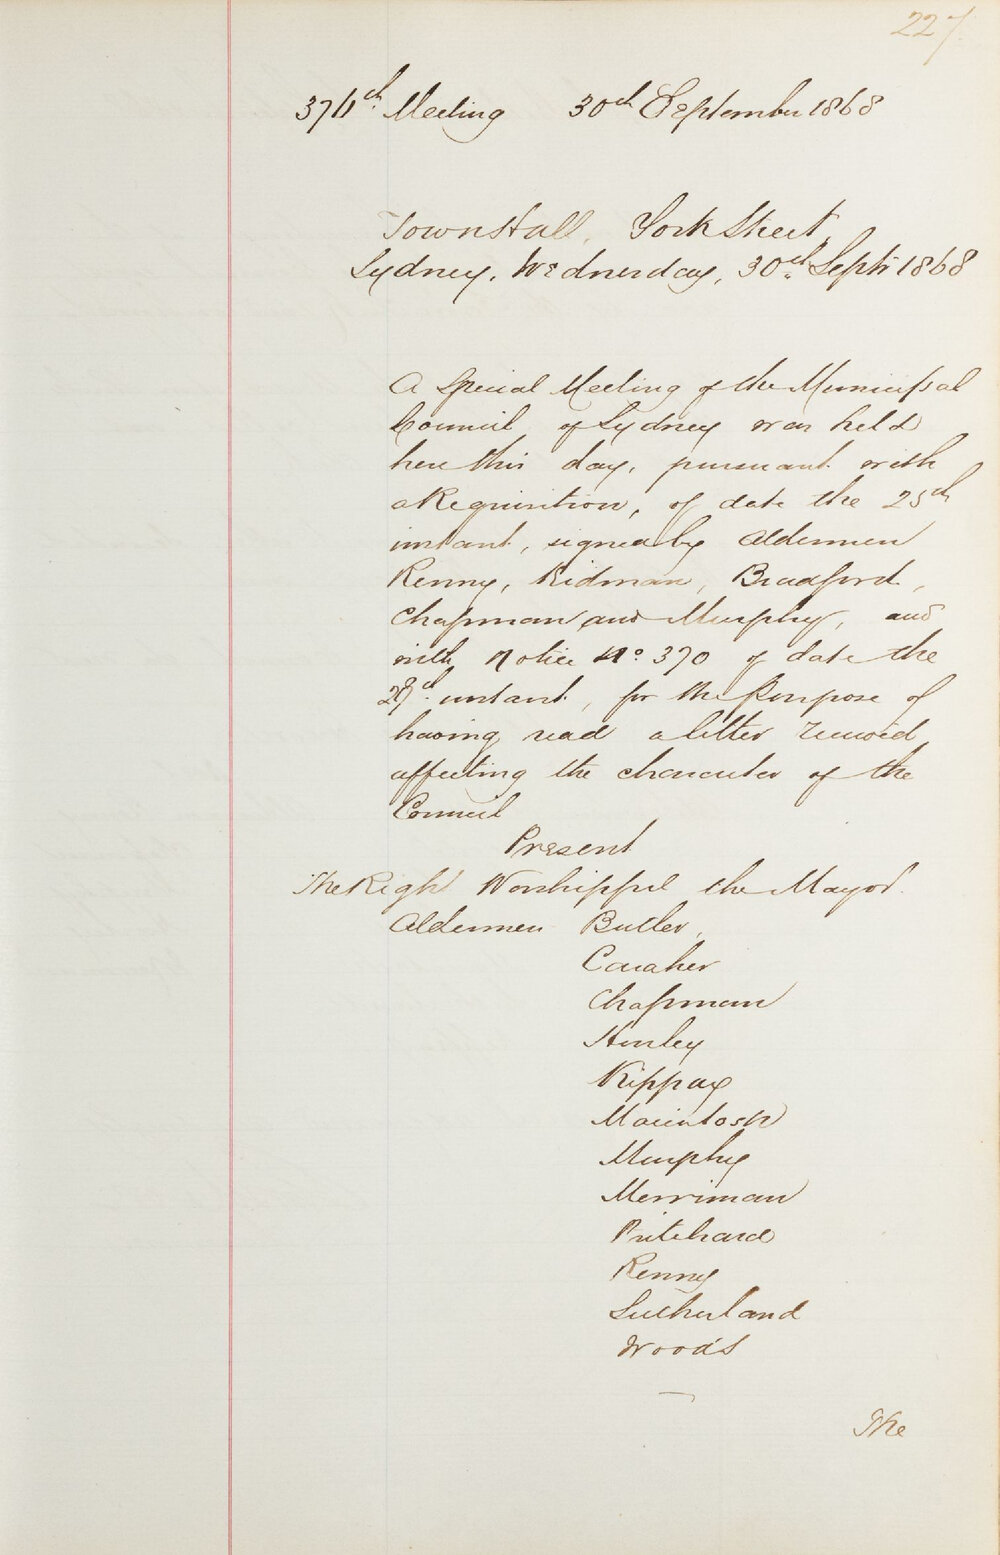 227
374th Meeting 30th September 1868
Town Hall, York Street,
Sydney, Wednesday, 30th Septr 1868
A Special Meeting of the Municipal
Council of Sydney was held
here this day, pursuant with
a Requisition, of date the 25th
instant, signed by Aldermen
Renny, Kidman, Bradford,
Chapman and Murphy, and
with Notice No. 370 of date the
instant, for the Purpose of
having read a letter received
affecting the character of the
Council
Present
The Right Worshipful the Mayor.
Aldermen Butler,
Caraher
Chapman
Hurley
Kippax
Macintosh
Murphy
Merriman
Pritchard
Renny
Sutherland
Woods
The